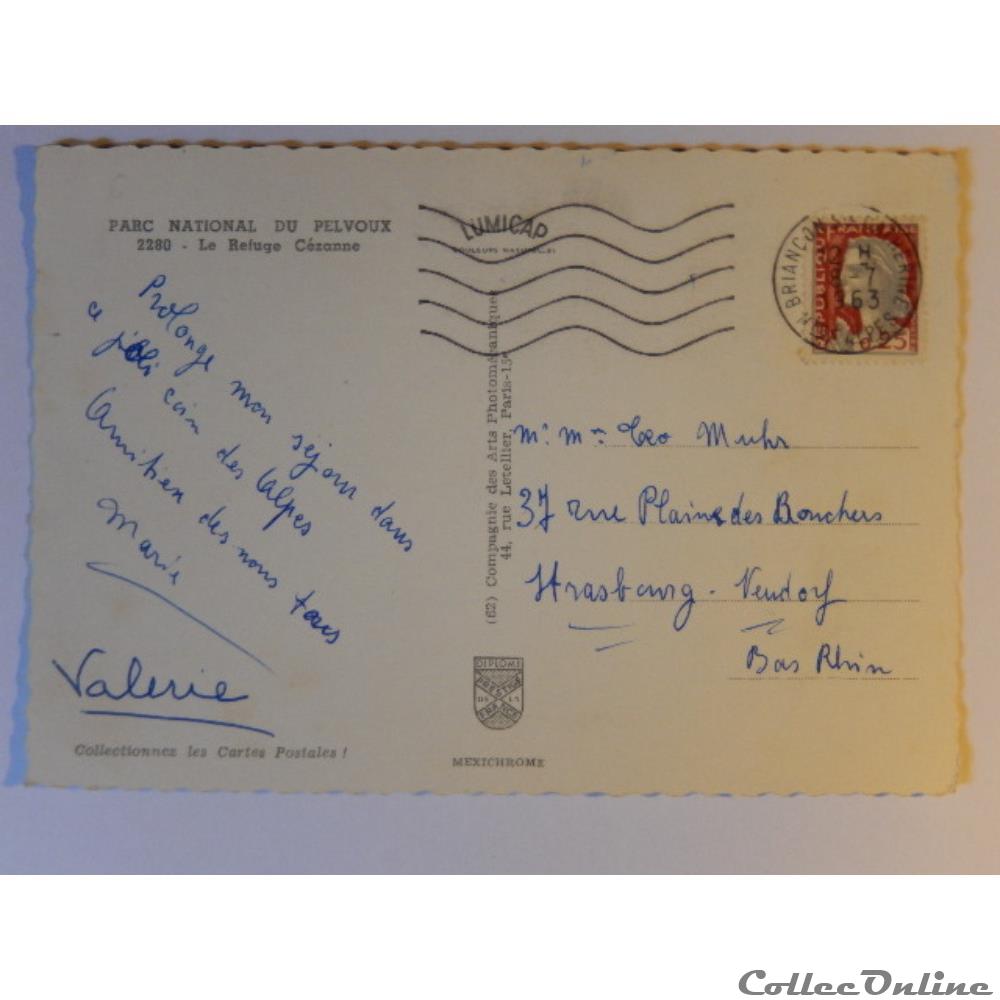 PARC NATIONAL DU PELVOUX
2280 - Le Refuge Cézanne
Prolonge mon séjour dans
ce joli coin des Alpes
Amitien des nous tous
Marie
Valerie
Collectionnez les Cartes Postales !
LUMICAP
COULEURS NATURELLES
(62) Compagnie des Arts Photomécaniques
44, rue Letellier, Paris-15e
DIPLOME
PRESTIGE
DE LA
FRANCE
MEXICHROME
BRIANÇON
H
7
63
REPUBLIQUE FRANÇAISE
0,25
Mr Mme Leo Muhr
37 rue Plaine des Bouchers
Strasbourg - Neudorf
Bas Rhin
CollecOnline